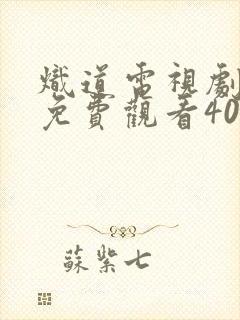 熾道電視劇
免費觀看40
蘇紫七